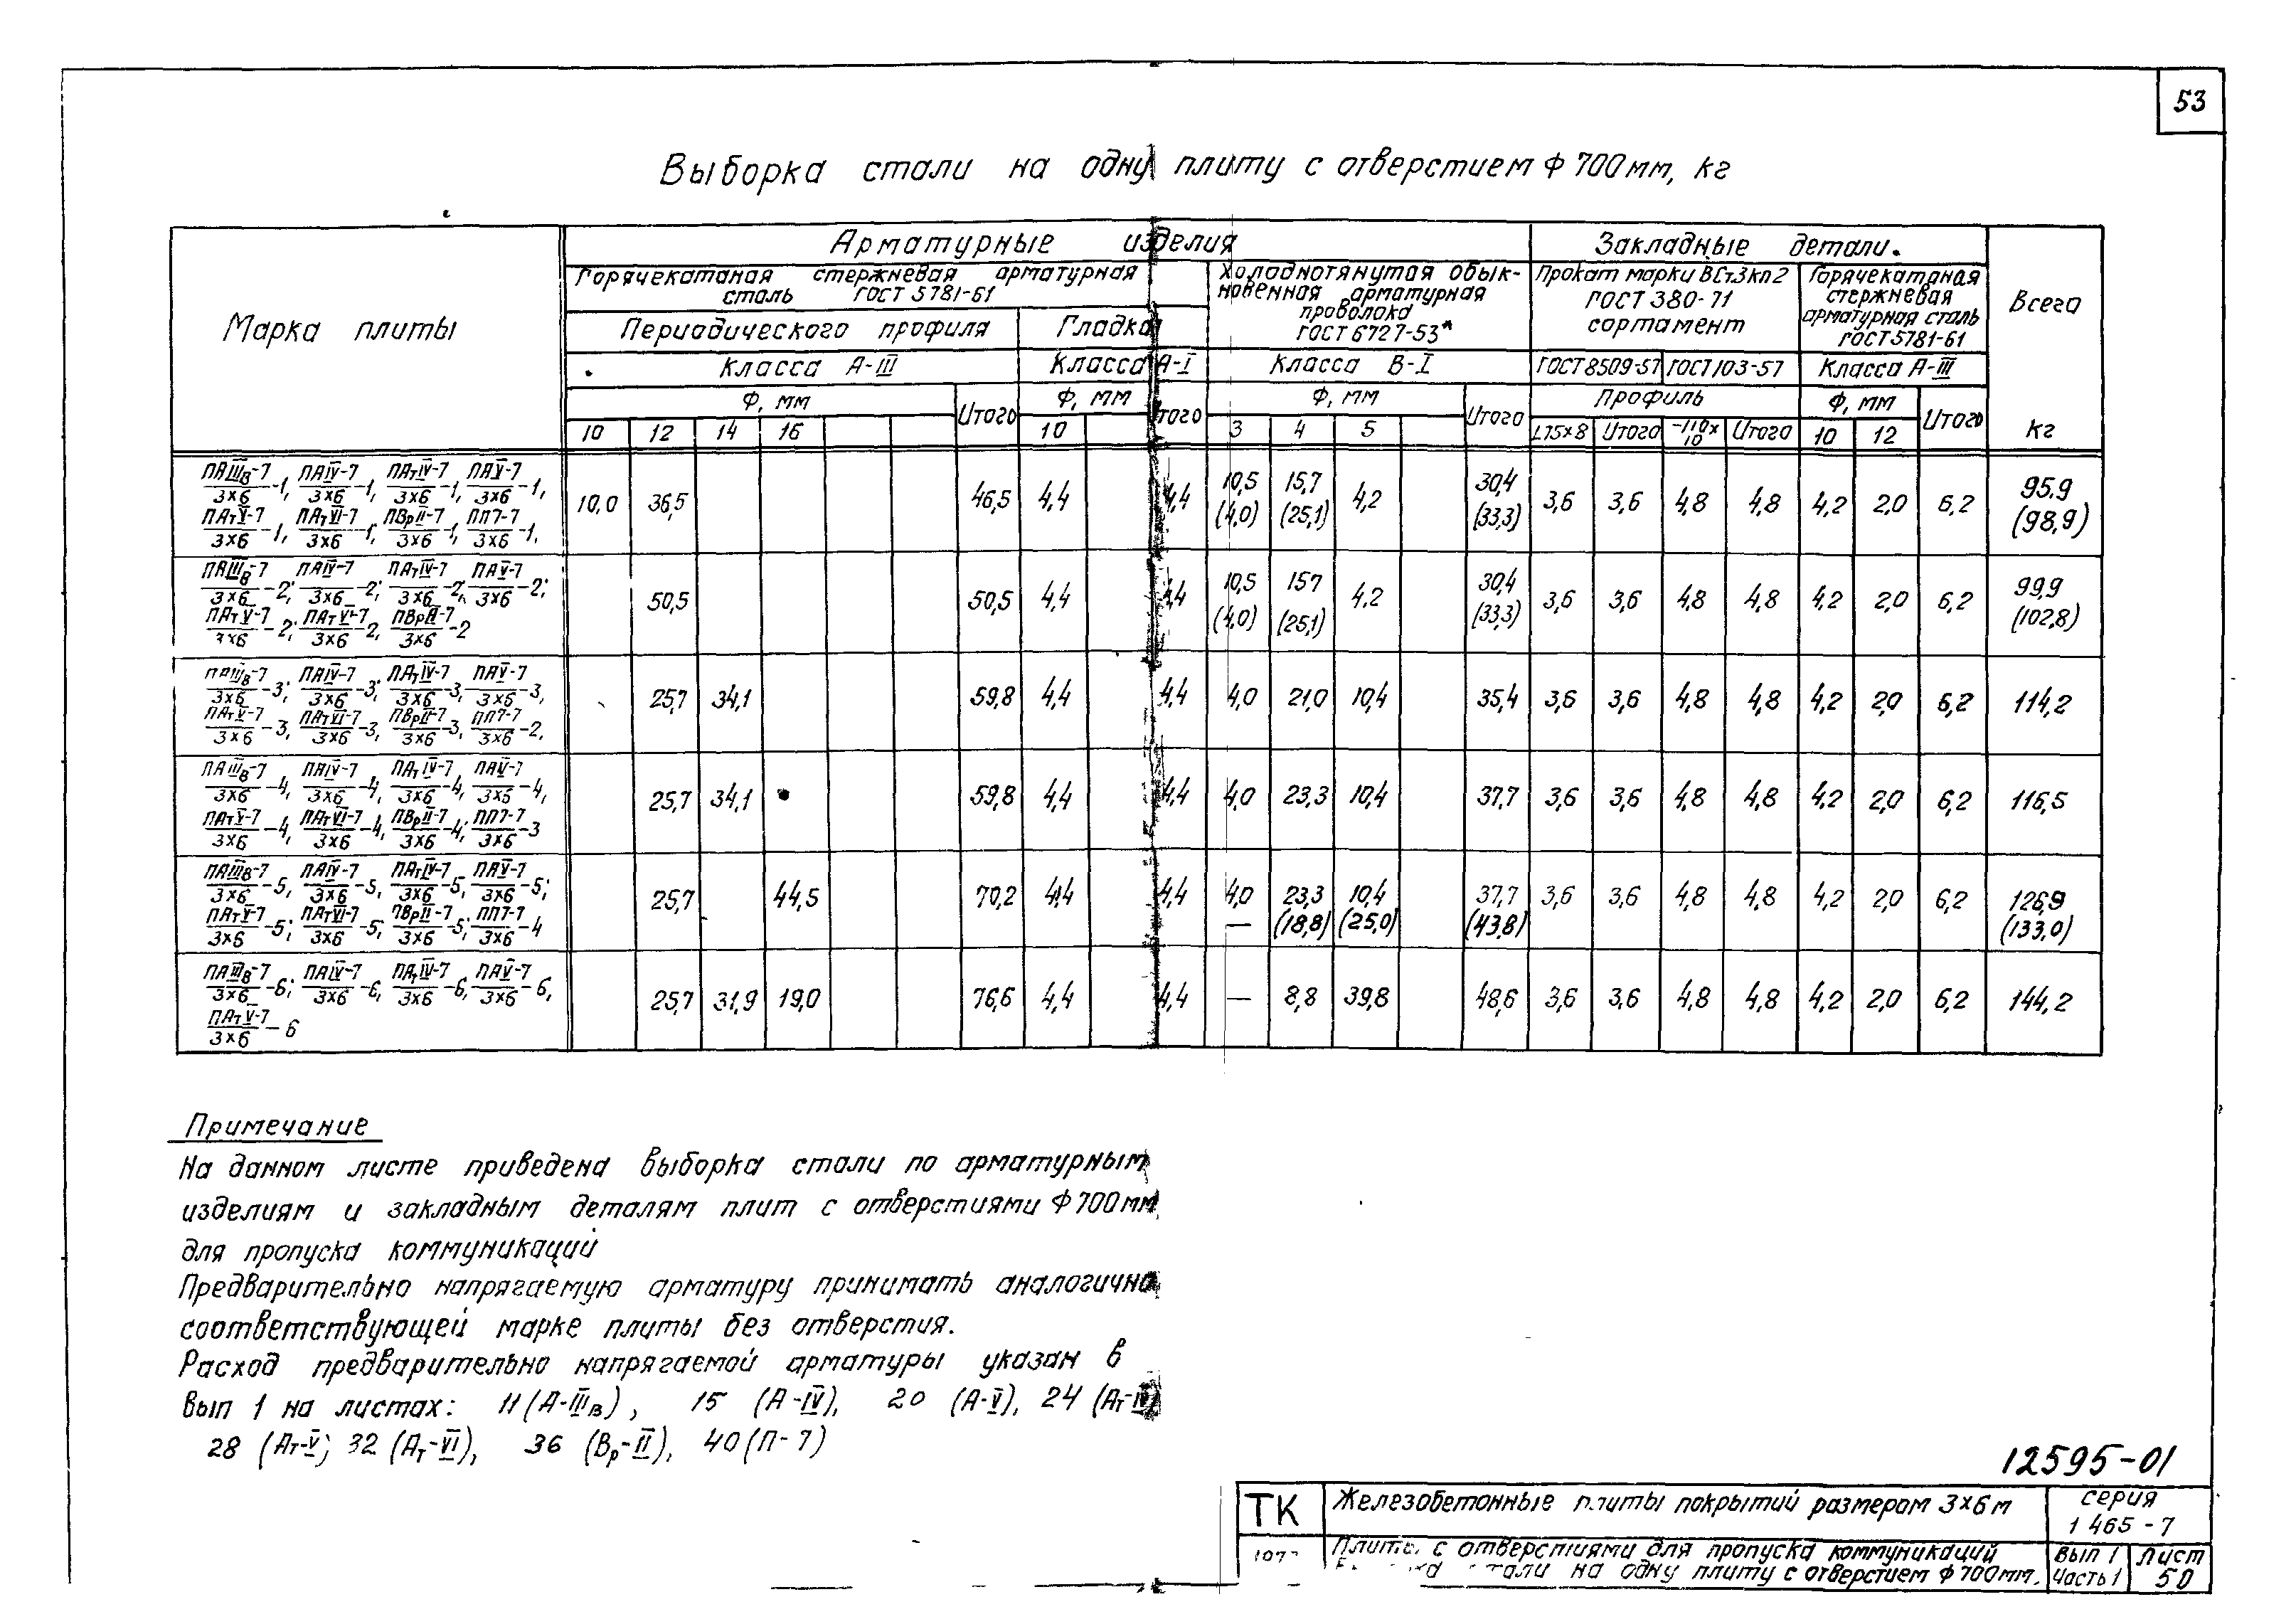 53
Выборка стали на одну плиту с отверстием Ф 700мм, кг
Марка плиты
Арматурные изделия
Закладные детали.
Всего
кг
Горячекатаная стержневая арматурная
сталь ГОСТ 5781-61
Холоднотянутая обык-
новенная арматурная
проволока
ГОСТ 6727-53*
Прокат марки ВСт3кп2
ГОСТ 380-71
сортамент
Горячекатаная
стержневая
арматурная сталь
ГОСТ 5781-61
Периодического профиля
Гладкая
Класса А-III
Класса А-I
Класса В-I
ГОСТ 8509-57
ГОСТ 103-57
Класса А-III
Ф, мм Итого Ф, мм Итого Ф, мм Итого Профиль Ф, мм Итого
10 12 14 16 10 3 4 5 L75×8 Итого -110×10 Итого 10 12
ПАIIIв-7/3×6-1, ПАIV-7/3×6-1, ПАтIV-7/3×6-1, ПАV-7/3×6-1,
ПАтV-7/3×6-1, ПАтVI-7/3×6-1, ПВрII-7/3×6-1, ПП7-7/3×6-1,
10,0 36,5 46,5 4,4 4,4 10,5 15,7 4,2 30,4 3,6 3,6 4,8 4,8 4,2 2,0 6,2 95,9
(4,0) (25,1) (33,3) (98,9)
ПАIIIв-7/3×6-2; ПАIV-7/3×6-2; ПАтIV-7/3×6-2; ПАV-7/3×6-2;
ПАтV-7/3×6-2; ПАтVI-7/3×6-2, ПВрII-7/3×6-2
50,5 50,5 4,4 4,4 10,5 157 4,2 30,4 3,6 3,6 4,8 4,8 4,2 2,0 6,2 99,9
(4,0) (25,1) (33,3) (102,8)
ПАIIIв-7/3×6-3; ПАIV-7/3×6-3; ПАтIV-7/3×6-3, ПАV-7/3×6-3,
ПАтV-7/3×6-3, ПАтVI-7/3×6-3, ПВрII-7/3×6-3, ПП7-7/3×6-2,
25,7 34,1 59,8 4,4 4,4 4,0 21,0 10,4 35,4 3,6 3,6 4,8 4,8 4,2 2,0 6,2 114,2
ПАIIIв-7/3×6-4, ПАIV-7/3×6-4, ПАтIV-7/3×6-4, ПАV-7/3×6-4,
ПАтV-7/3×6-4, ПАтVI-7/3×6-4, ПВрII-7/3×6-4; ПП7-7/3×6-3
25,7 34,1 59,8 4,4 4,4 4,0 23,3 10,4 37,7 3,6 3,6 4,8 4,8 4,2 2,0 6,2 116,5
ПАIIIв-7/3×6-5, ПАIV-7/3×6-5, ПАтIV-7/3×6-5, ПАV-7/3×6-5;
ПАтV-7/3×6-5; ПАтVI-7/3×6-5, ПВрII-7/3×6-5; ПП7-7/3×6-4
25,7 44,5 70,2 4,4 4,4 4,0 23,3 10,4 37,7 3,6 3,6 4,8 4,8 4,2 2,0 6,2 126,9
— (18,8) (25,0) (43,8) (133,0)
ПАIIIв-7/3×6-6; ПАIV-7/3×6-6, ПАтIV-7/3×6-6, ПАV-7/3×6-6,
ПАтV-7/3×6-6
25,7 31,9 19,0 76,6 4,4 4,4 — 8,8 39,8 48,6 3,6 3,6 4,8 4,8 4,2 2,0 6,2 144,2
Примечание
На данном листе приведена выборка стали по арматурным
изделиям и закладным деталям плит с отверстиями Ф 700мм
для пропуска коммуникаций
Предварительно напрягаемую арматуру принимать аналогично
соответствующей марке плиты без отверстия.
Расход предварительно напрягаемой арматуры указан в
вып 1 на листах: 11 (А-IIIв), 15 (А-IV), 20 (А-V), 24 (Ат-IV)
28 (Ат-V; 32 (Ат-VI), 36 (Вр-II), 40 (П-7)
12595-01
ТК
Железобетонные плиты покрытий размером 3×6м
серия
1 465-7
Плиты с отверстиями для пропуска коммуникаций
стали на одну плиту с отверстием Ф 700мм.
Вып 1
Часть 1
Лист
50